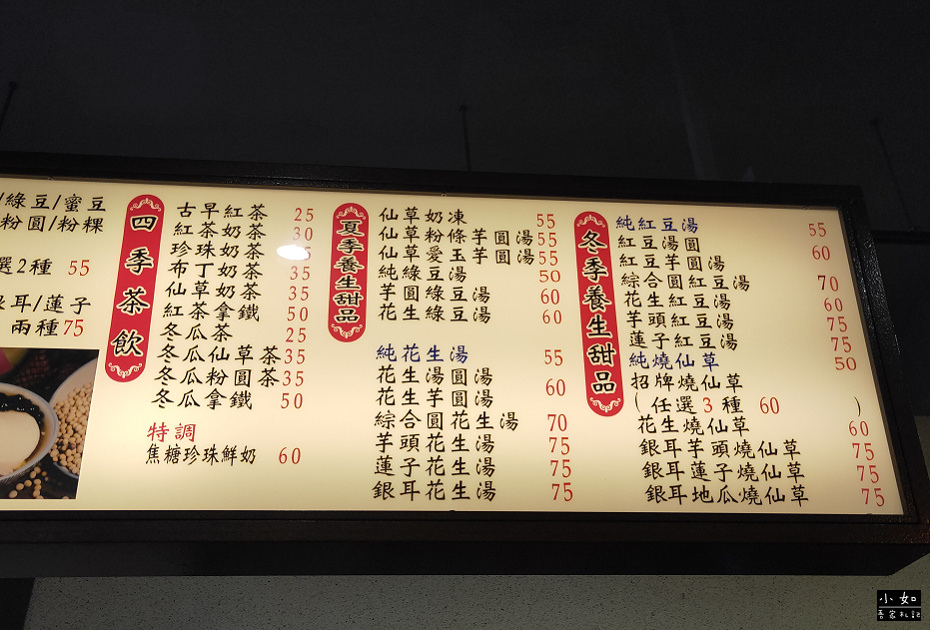 /綠豆/蜜豆
粉圓/粉粿
選2種 55
銀耳/蓮子
兩種75
四季茶飲
古早紅茶 25
紅茶奶茶 30
珍珠奶茶 35
布丁奶茶 35
仙草奶茶 35
紅茶拿鐵 50
冬瓜茶 25
冬瓜仙草茶35
冬瓜粉圓茶35
冬瓜拿鐵 50
特調
焦糖珍珠鮮奶 60
夏季養生甜品
仙草奶凍 55
仙草粉條芋圓湯55
仙草愛玉芋圓湯55
純綠豆湯 50
芋圓綠豆湯 60
花生綠豆湯 60
純花生湯 55
花生湯圓湯 60
花生芋圓湯
綜合圓花生湯 70
芋頭花生湯 75
蓮子花生湯 75
銀耳花生湯 75
冬季養生甜品
純紅豆湯 55
紅豆湯圓 60
紅豆芋圓湯
綜合圓紅豆湯 70
花生紅豆湯 60
芋頭紅豆湯 75
蓮子紅豆湯 75
純燒仙草 50
招牌燒仙草
(任選3種 60 )
花生燒仙草 60
銀耳芋頭燒仙草 75
銀耳蓮子燒仙草 75
銀耳地瓜燒仙草 75
小如
吾家札記